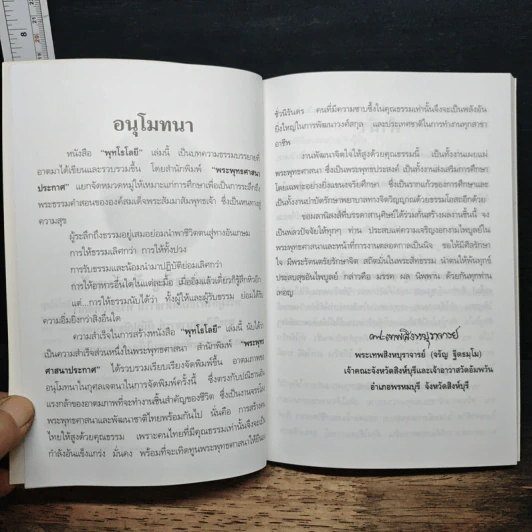 อนุโมทนา
หนังสือ "พุทโธโลยี" เล่มนี้ เป็นบทความธรรมบรรยายที่
อาตมาได้เขียนและรวบรวมขึ้น โดยสำนักพิมพ์ "พระพุทธศาสนา
ประกาศ" แยกจัดหมวดหมู่ให้เหมาะแก่การศึกษาเพื่อการระลึกถึง
พระธรรมคำสอนขององค์สมเด็จพระสัมมาสัมพุทธเจ้า ซึ่งเป็นหนทางสู่
ความสุข
ผู้ระลึกถึงธรรมอยู่เสมอย่อมนำพาชีวิตตนสู่ทางอันเกษม
การให้ธรรมเลิศกว่า การให้ทั้งปวง
การรับธรรมและน้อมนำมาปฏิบัติย่อมเลิศกว่า
การให้อาหารอิ่มได้ในแต่ละมื้อ เมื่ออิ่มแล้วเดี๋ยวก็รู้สึกหิวอีก
แต่...การให้ธรรมนับได้ว่า ทั้งผู้ให้และผู้รับธรรม ย่อมได้รับ
ความอิ่มยิ่งกว่าสิ่งอื่นใด
ความสำเร็จในการสร้างหนังสือ "พุทโธโลยี" เล่มนี้ นับได้ว่า
เป็นความสำเร็จส่วนหนึ่งในพระพุทธศาสนา สำนักพิมพ์ "พระพุทธ
ศาสนาประกาศ" ได้รวบรวมเรียบเรียงจัดพิมพ์ขึ้น อาตมภาพขอ
อนุโมทนาในกุศลเจตนาในการจัดพิมพ์ครั้งนี้ ซึ่งตรงกับปณิธานอัน
แรงกล้าของอาตมภาพที่จะทำงานชิ้นสำคัญของชีวิต ซึ่งเป็นงานของ
พระพุทธศาสนาและพัฒนาชาติไทยพร้อมกันไป นั่นคือ การสร้างคน
ไทยให้สูงด้วยคุณธรรม เพราะคนไทยที่มีคุณธรรมเท่านั้นจึงจะเป็น
กำลังอันแข็งแกร่ง มั่นคง พร้อมที่จะเทิดทูนพระพุทธศาสนาให้ยืนยง
ชั่วนิรันดร คนที่มีความซาบซึ้งในคุณธรรมเท่านั้นจึงจะเป็นพลังอัน
ยิ่งใหญ่ในการพัฒนาวงศ์สกุล และประเทศชาติในการทำงานทุกสาขา
อาชีพ
งานพัฒนาจิตใจให้สูงด้วยคุณธรรมนี้ เป็นทั้งงานเผยแผ่
พระพุทธศาสนา ซึ่งเป็นพระพุทธประสงค์ เป็นทั้งงานส่งเสริมการศึกษา
โดยเฉพาะอย่างยิ่งแขนงจริยศึกษา ซึ่งเป็นรากแก้วของการศึกษาและ
เป็นทั้งงานบำบัดรักษาพยาบาลทางจิตวิญญาณด้วยธรรมโอสถอีกด้วย
ขอผลานิสงส์ที่บรรดาสานุศิษย์ได้ร่วมกันสร้างผลงานชิ้นนี้ จง
เป็นพลวปัจจัยให้ทุกๆ ท่าน ประสบแต่ความเจริญงอกงามไพบูลย์ใน
พระพุทธศาสนาและหน้าที่การงานตลอดกาลเป็นนิจ ขอให้มีศีลรักษา
ใจ มีพระรัตนตรัยรักษาจิต สถิตมั่นในพระสัทธรรม นำตนให้พ้นทุกข์
ประสบสุขอันไพบูลย์ กล่าวคือ มรรค ผล นิพพาน ด้วยกันทุกท่าน
เทอญ
พระเทพสิงหบุราจารย์
พระเทพสิงหบุราจารย์ (จรัญ ฐิตธมฺโม)
เจ้าคณะจังหวัดสิงห์บุรีและเจ้าอาวาสวัดอัมพวัน
อำเภอพรหมบุรี จังหวัดสิงห์บุรี
8